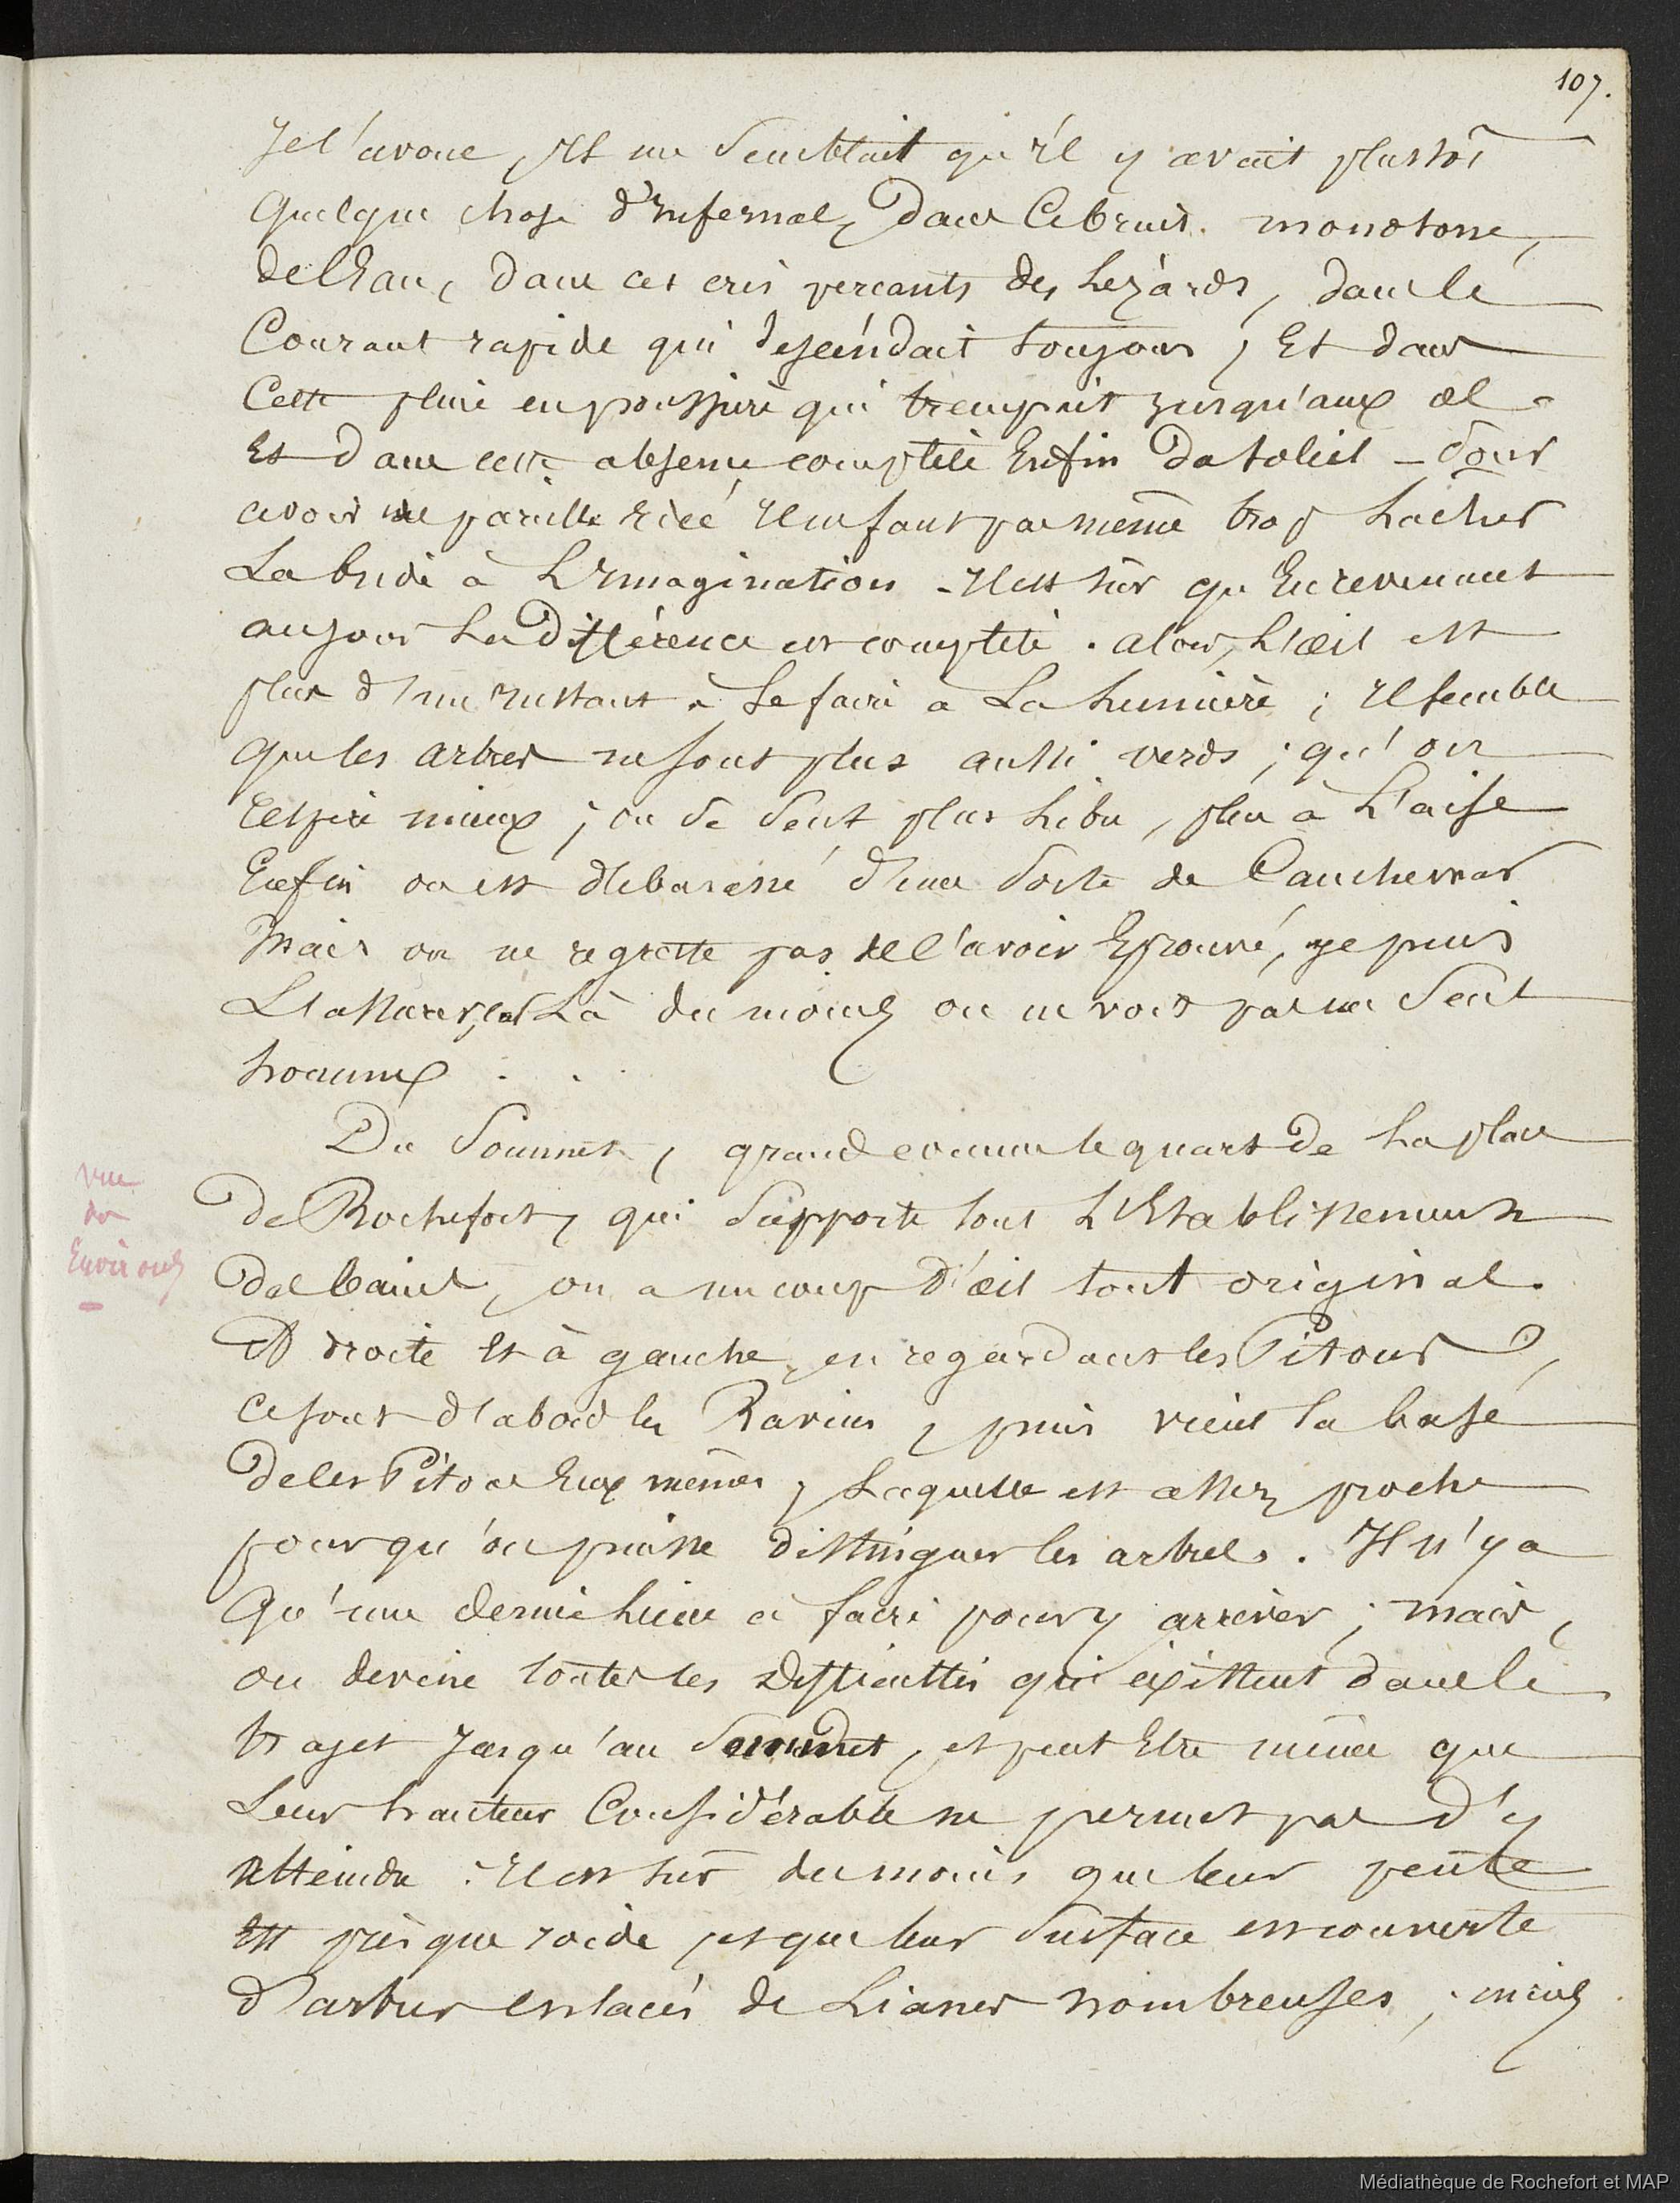 107.
Je l'avoue, Il me semblait qu'il y avait plustôt
quelque chose d'Infernal, dans ce bruit monotone,
de l'Eau, dans ces cris percants des Lezards, dans le
Courant rapide qui descendait toujours, Et dans
Cette pluie en poussiere qui trempait jusqu'aux
Et dans cette absence complète Enfin du soleil – Pour
avoir une pareille idée Il ne faut pas même trop Lacher
La bride à L'Imagination – Il est sûr qu'En revenant
au jour La Différence est complète. alors, L'œil est
plus d'un Instant à se faire à La Lumière ; Il semble
que les arbres ne sont plus aussi verds ; qu'on
respire mieux ; on se sent plus Libre, plus à L'aise
Enfin on est débarassé d'une sorte de Cauchemar
Mais on ne regrette pas de l'avoir Eprouvé, je puis
L'assurer, car Là du moins on ne voit pas un seul
homme . . .
vue
des
Environs
Du Sommet, grand comme le quart de La place
de Rochefort, qui supporte tout L'Etablissement
des bains, on a un coup d'œil tout original.
A droite Et à gauche, en regardant les Pitons,
ce sont d'abord les Ravins, puis vient la base
de les Pitons Eux mêmes, Laquelle est assez proche
pour qu'on puisse distinguer les arbres. Il n'y a
Qu'une demie Lieue à faire pour y arriver ; mais,
on devine toutes les Difficultés qui existent dans le
trajet Jusqu'au Sommet, et peut Etre même que
Leur hauteur Considérable ne permet pas d'y
atteindre. Il est sûr du moins que leur pente
Est presque roide, et que leur Surface est couverte
d'arbres enlacés de Lianes nombreuses ; mais
Médiathèque de Rochefort et MAP